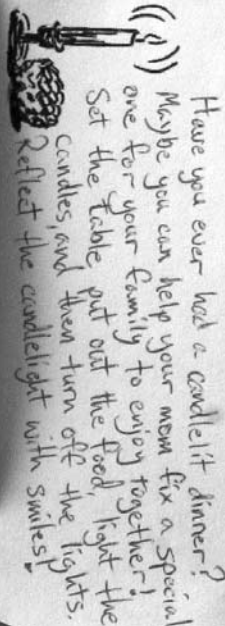 Have you ever had a candlelit dinner?
Maybe you can help your mom fix a special
one for your family to enjoy together!
Set the table put out the food, light the
candles, and then turn off the lights.
Reflect the candlelight with smiles!